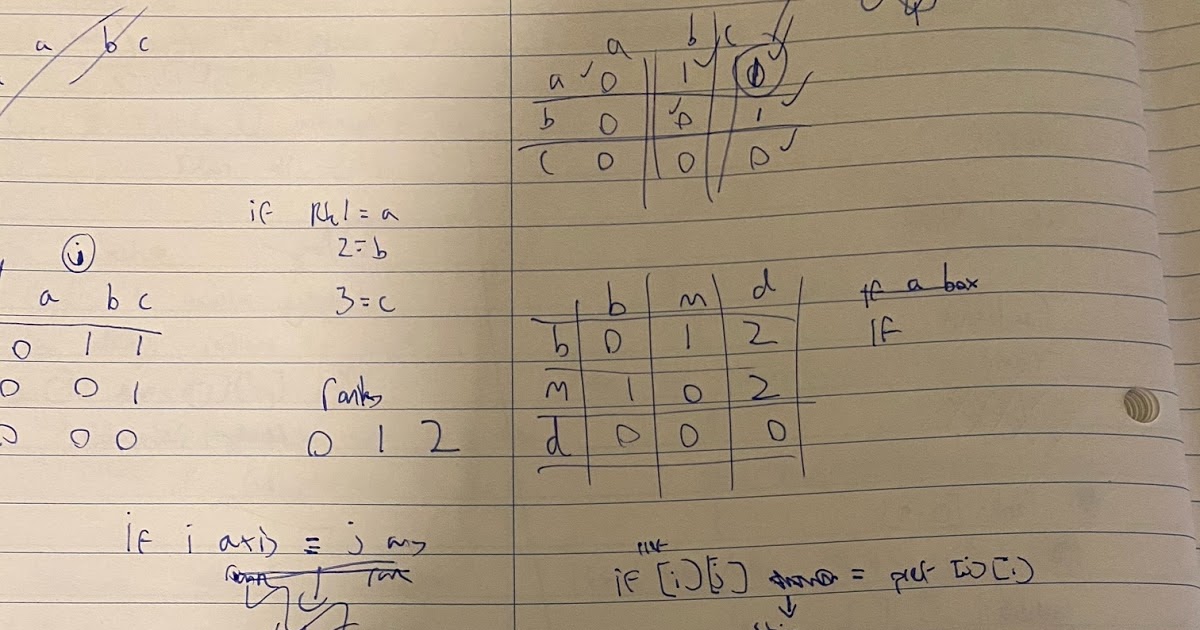 a b c
if Rk1 = a
2 = b
3 = c
j
a b c
0 1 1
0 0 1
0 0 0
ranks
0 1 2
if i axis = j
a b c
a 0 1
b 0 0 1
c 0 0 0
b m d
b 0 1 2
m 1 0 2
d 0 0 0
if a box
IF
if [i][j] = pref [j][i]